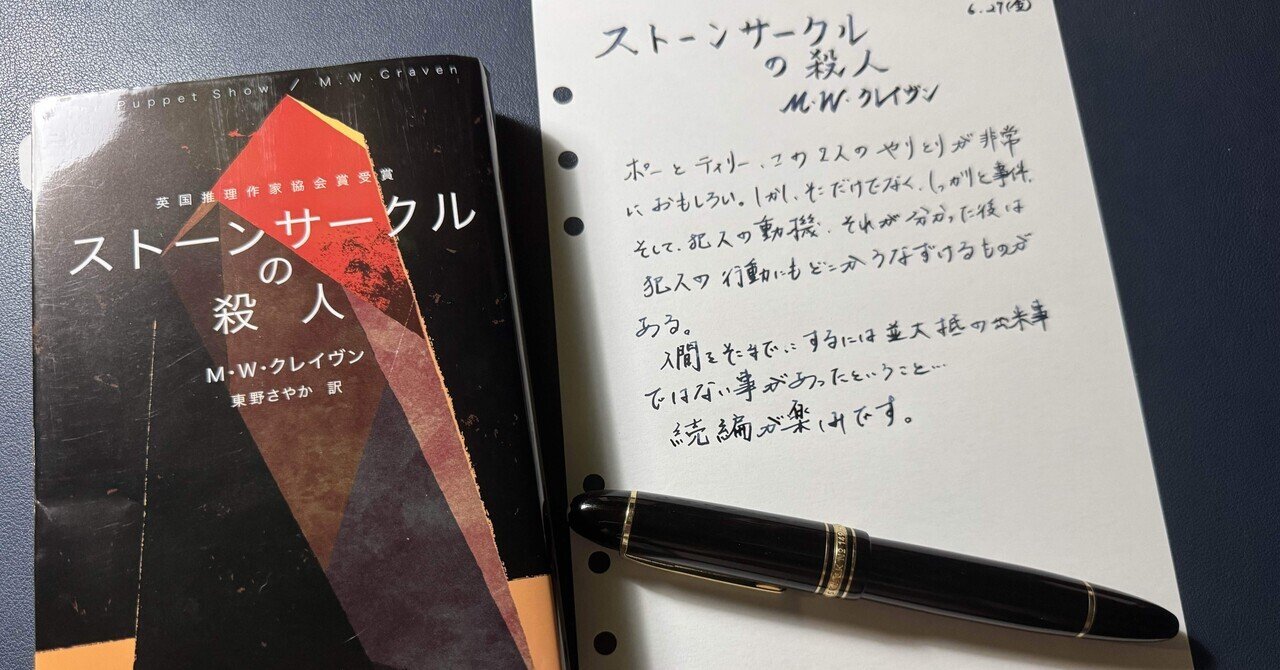 Puppet Show / M.W.Craven
英国推理作家協会賞受賞
ストーンサークル
の
殺人
M・W・クレイヴン
東野さやか 訳
6.27(金)
ストーンサークル
の殺人
M.W.クレイヴン
ポーとティリー、この2人のやりとりが非常
におもしろい。しかし、そこだけでなく、しっかりと事件、
そして、犯人の動機、それが分かった後は
犯人の行動にもどこかうなずけるものが
ある。
人間をそこまでにするには並大抵の出来事
ではない事があったということ…
続編が楽しみです。